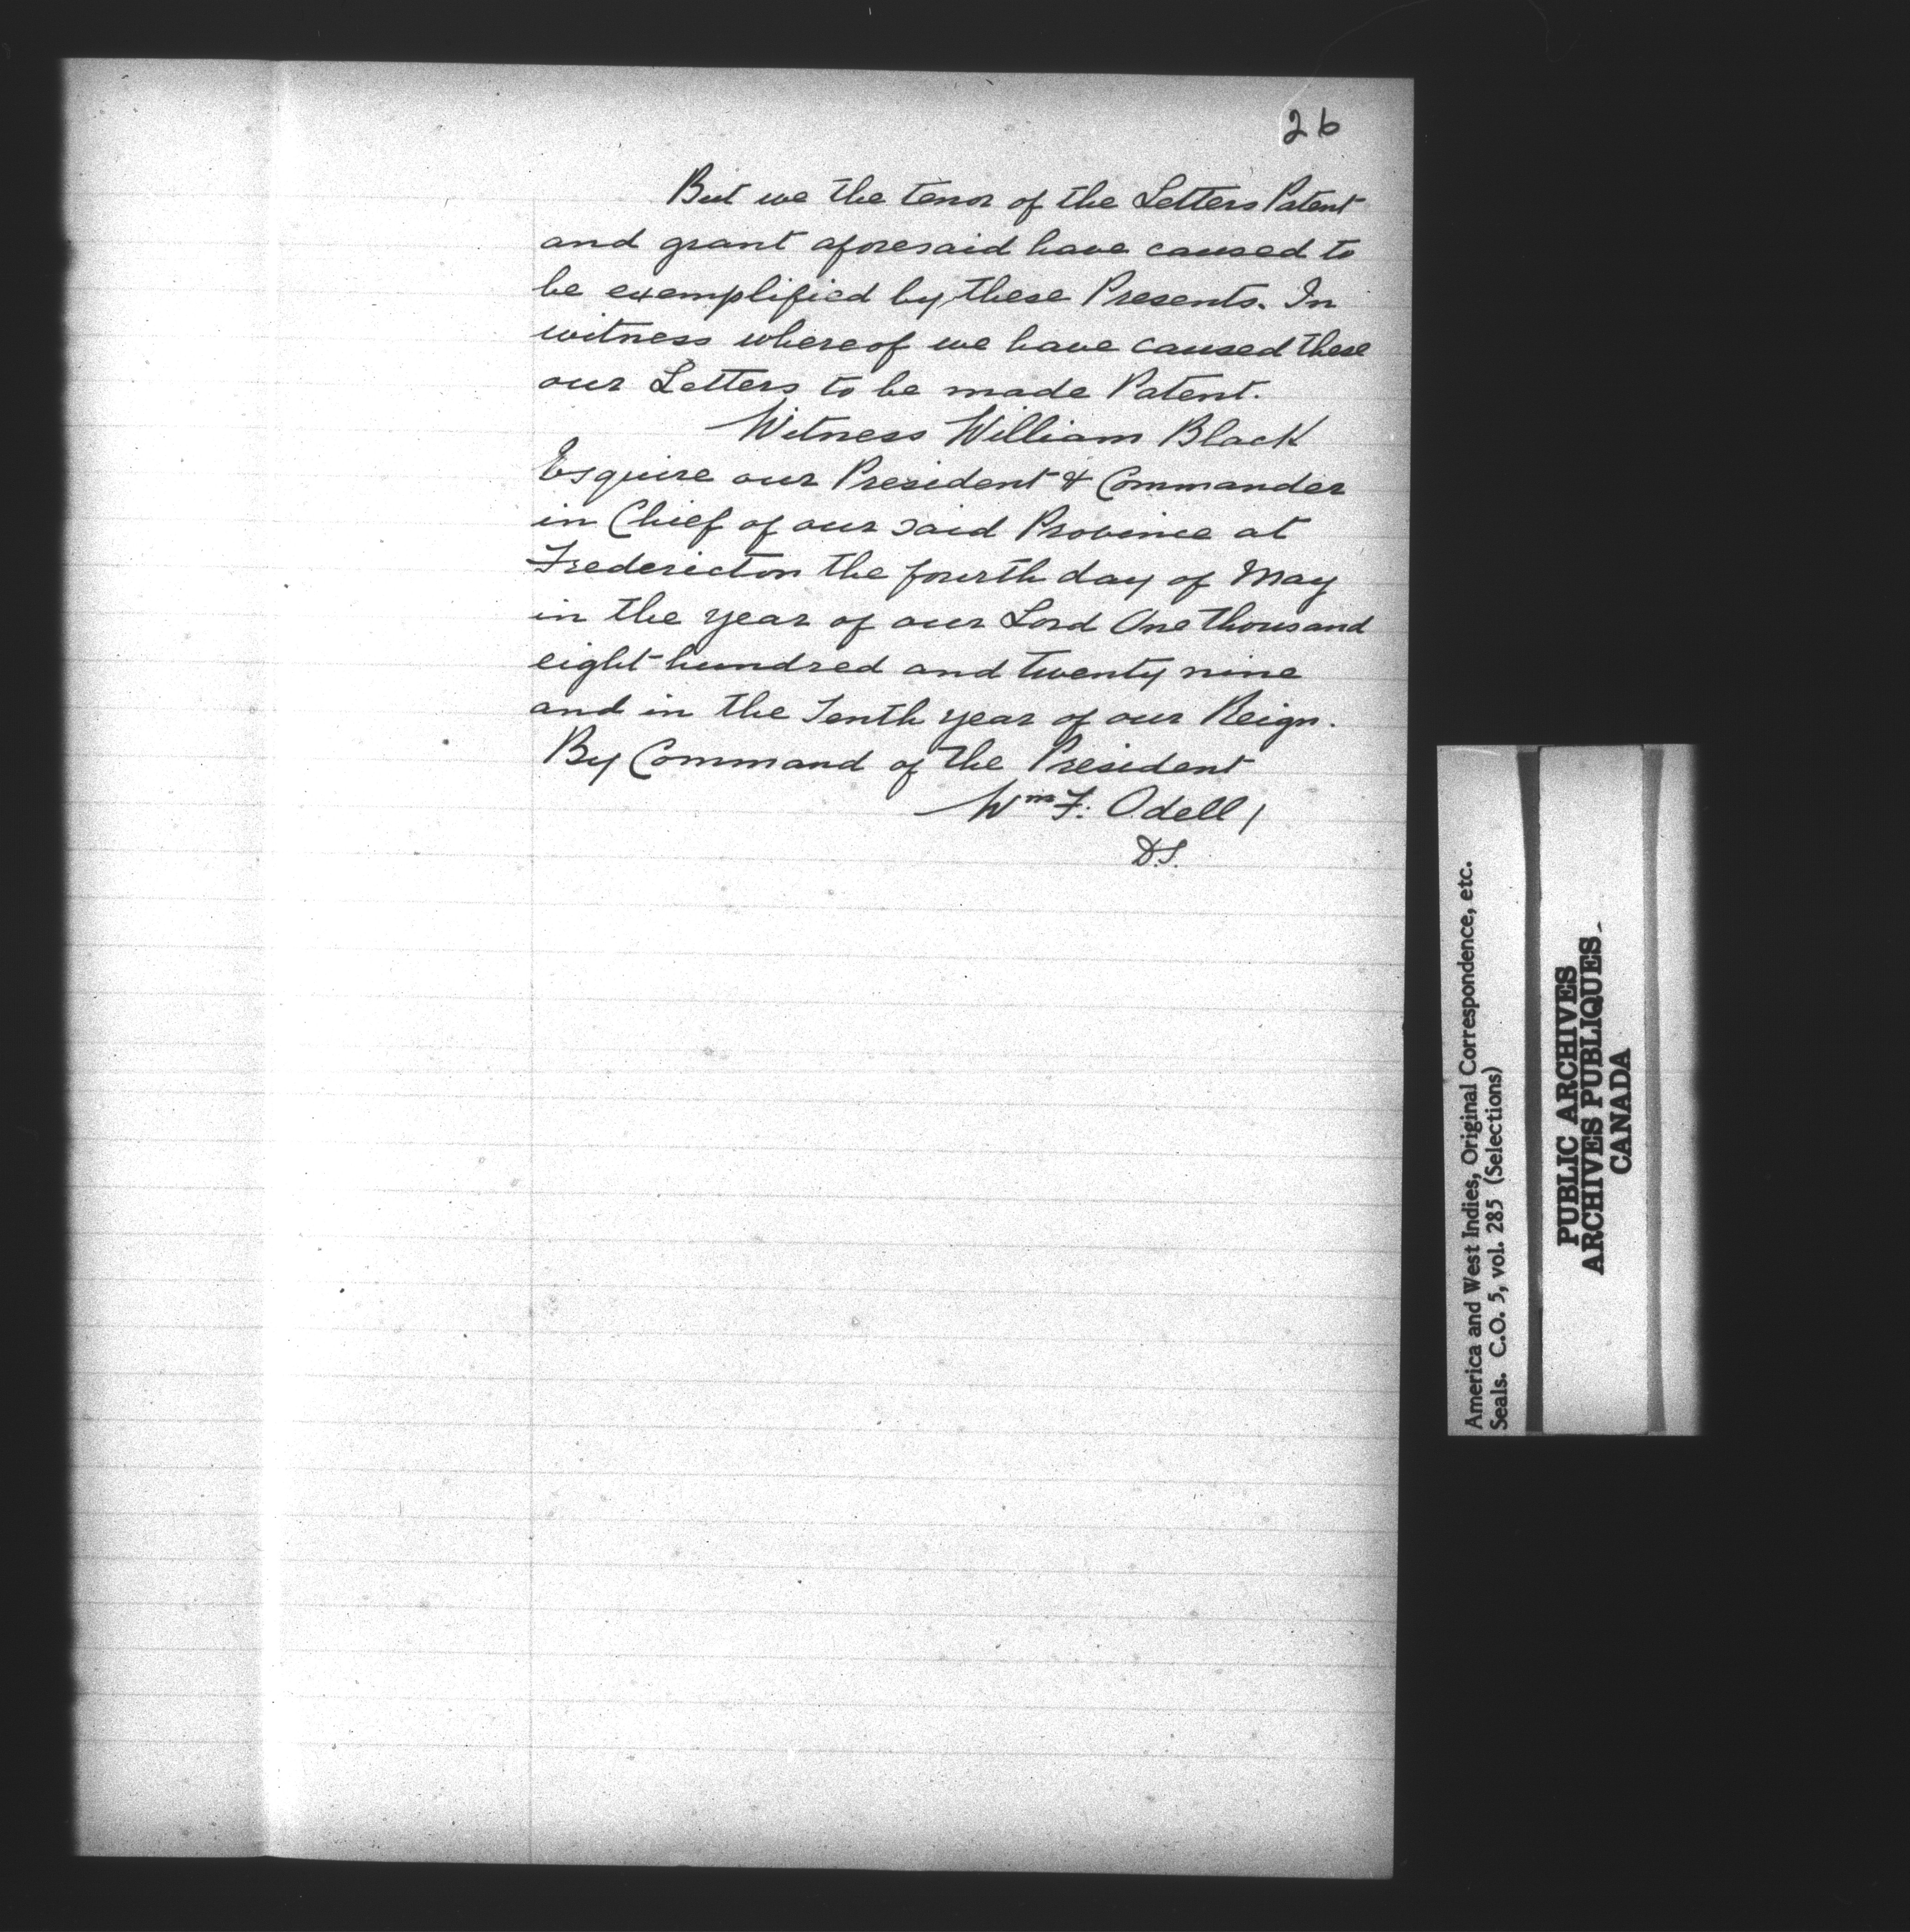 26
But we the tenor of the Letters Patent
and grant aforesaid have caused to
be exemplified by these Presents. In
witness whereof we have caused these
our Letters to be made Patent.
Witness William Black
Esquire our President & Commander
in Chief of our said Province at
Fredericton the fourth day of May
in the year of our Lord One thousand
eight hundred and twenty nine
and in the Tenth year of our Reign.
By Command of the President
Wm F. Odell
D.S.
America and West Indies, Original Correspondence, etc.
Seals. C.O. 5, vol. 285 (Selections)
PUBLIC ARCHIVES
ARCHIVES PUBLIQUES
CANADA